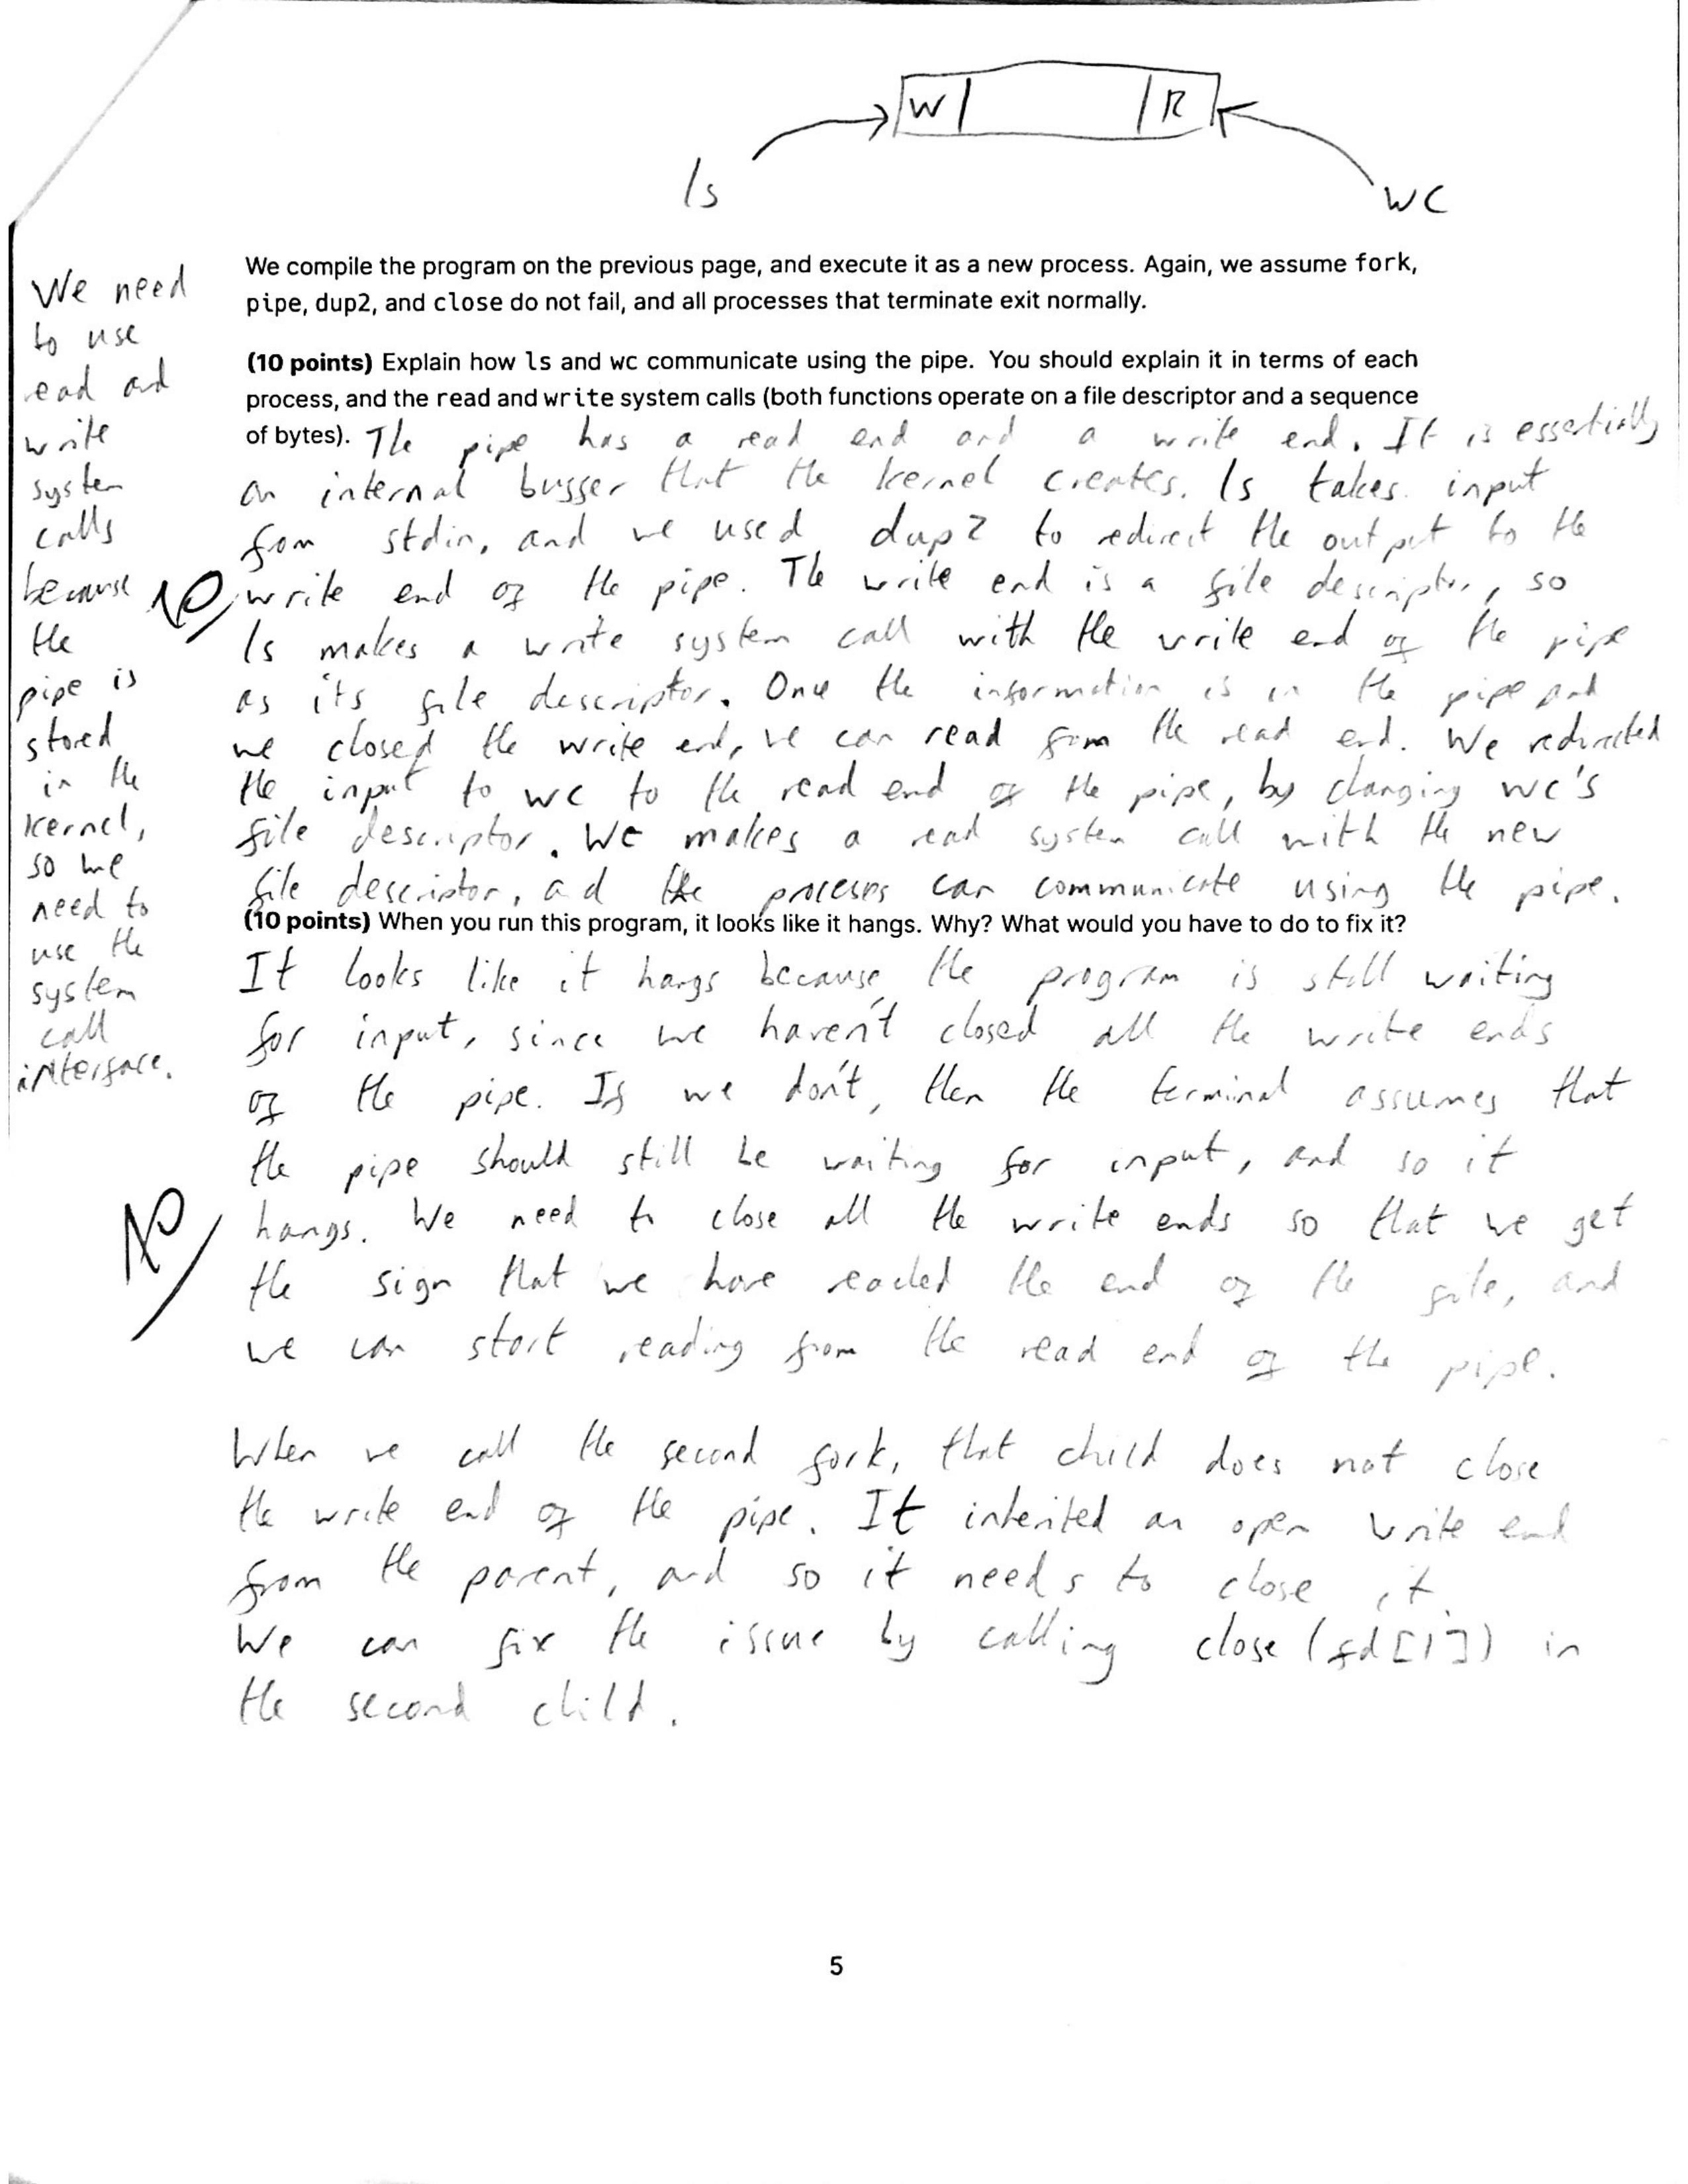 W R
ls
wc
We compile the program on the previous page, and execute it as a new process. Again, we assume fork,
pipe, dup2, and close do not fail, and all processes that terminate exit normally.
(10 points) Explain how ls and wc communicate using the pipe. You should explain it in terms of each
process, and the read and write system calls (both functions operate on a file descriptor and a sequence
of bytes). The pipe has a read end and a write end. It is essentially
an internal busser that the kernel creates. ls takes input
from stdin, and we used dup2 to redirect the output to the
write end of the pipe. The write end is a file descriptor, so
ls makes a write system call with the write end of the pipe
as its file descriptor. Once the information is in the pipe and
we closed the write end, we can read from the read end. We redirected
the input to wc to the read end of the pipe, by changing wc's
file descriptor. WC makes a read system call with the new
file descriptor, ad the processes can communicate using the pipe.
We need
to use
read and
write
system
calls
because
the
pipe is
stored
in the
kernel,
so we
need to
use the
system
call
interface.
10/
(10 points) When you run this program, it looks like it hangs. Why? What would you have to do to fix it?
It looks like it hangs because the program is still waiting
for input, since we haven't closed all the write ends
of the pipe. If we don't, then the terminal assumes that
the pipe should still be waiting for input, and so it
hangs. We need to close all the write ends so that we get
the sign that we have reached the end of the file, and
we can start reading from the read end of the pipe.
10/
When we call the second fork, that child does not close
the write end of the pipe. It inherited an open write end
from the parent, and so it needs to close it.
We can fix the issue by calling close(fd[1]) in
the second child.
5